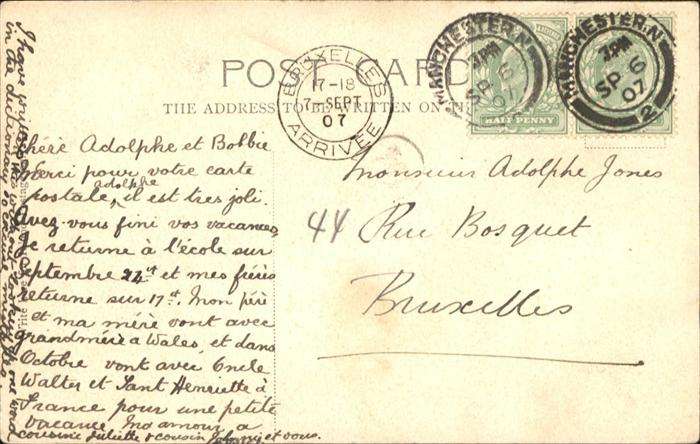 POST CARD
THE ADDRESS TO BE WRITTEN ON TH
BRUXELLES
17-18
7-SEPT
07
ARRIVÉE
MANCHESTER.N
3.PM
SP 6
07
HALF PENNY
MANCHESTER.N
3.PM
SP 6
07
2
Monsieur Adolphe Jones
44 Rue Bosquet
Bruxelles
chère Adolphe et Bobbie
Merci pour votre carte
postale, adolphe il est tres joli.
Avez-vous fini vos vacances,
Je returne à l'école sur
septembre 24st et mes frères
returne sur 17st. Mon père
et ma mère vont avec
grandmère à Wales et dans
Octobre vont avec Oncle
Walter et Tant Henriette à
France pour une petite
vacance Mo amour a
cousine Juliette & cousin Johnny et vous.
I have written this without looking up one word
in the dictionary so